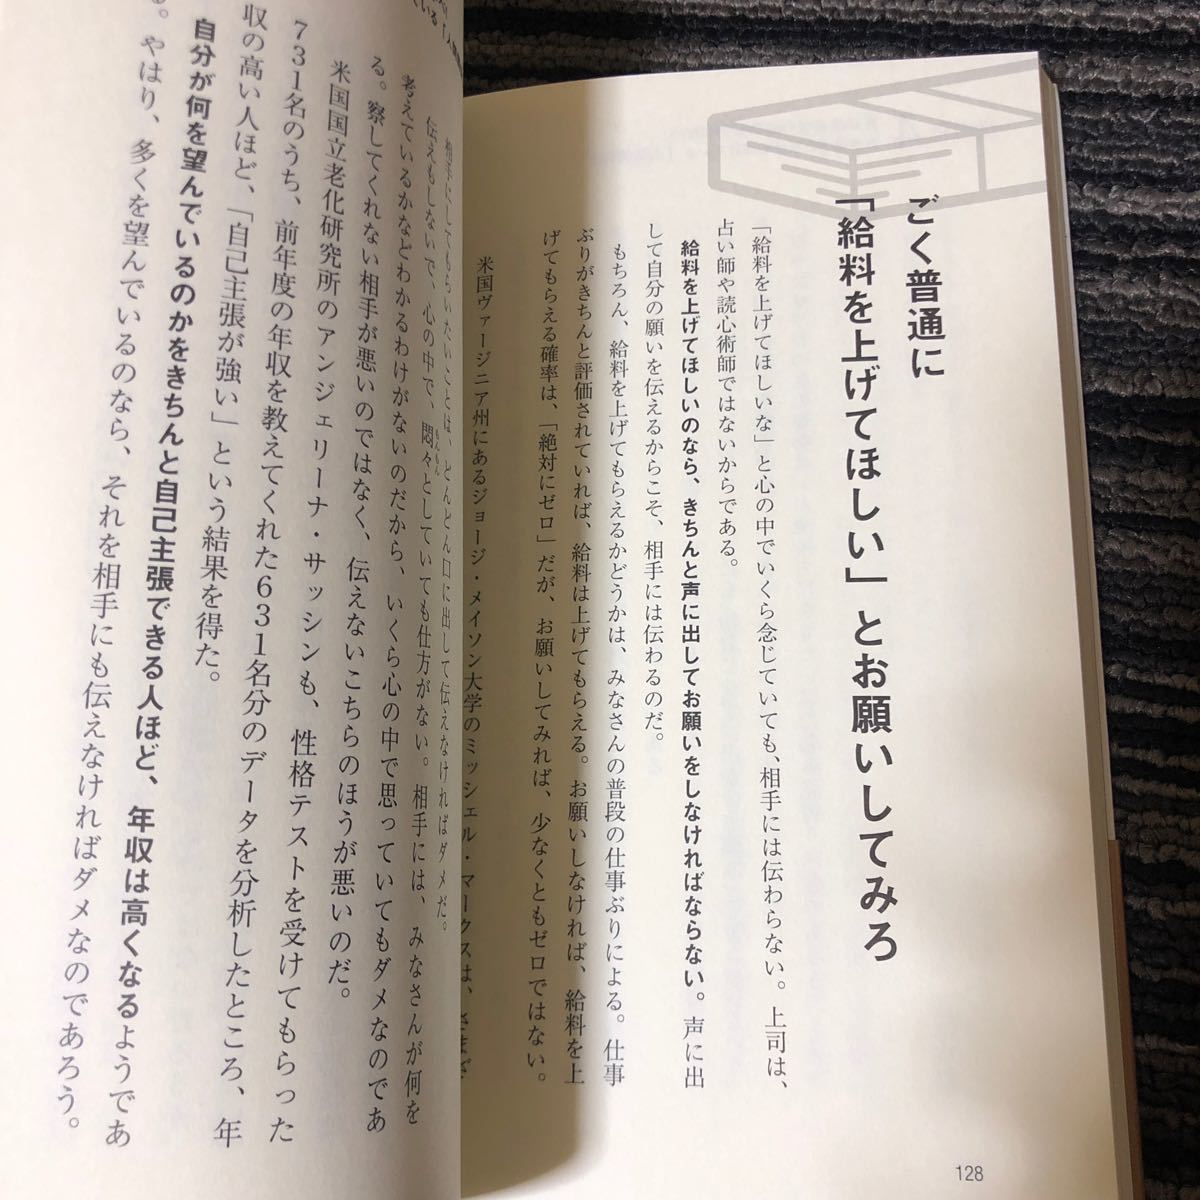 ごく普通に
「給料を上げてほしい」とお願いしてみろ
「給料を上げてほしいな」と心の中でいくら念じていても、相手には伝わらない。上司は、
占い師や読心術師ではないからである。
給料を上げてほしいのなら、きちんと声に出してお願いをしなければならない。声に出
して自分の願いを伝えるからこそ、相手には伝わるのだ。
もちろん、給料を上げてもらえるかどうかは、みなさんの普段の仕事ぶりによる。仕事
ぶりがきちんと評価されていれば、給料は上げてもらえる。お願いしなければ、給料を上
げてもらえる確率は、「絶対にゼロ」だが、お願いしてみれば、少なくともゼロではない。
米国ヴァージニア州にあるジョージ・メイソン大学のミッシェル・マークスは、さまざ
128
相手にしてもらいたいことは、どんどん口に出して伝えなければダメだ。
伝えもしないで、心の中で、悶々としていても仕方がない。相手には、みなさんが何を
もんもん
考えているかなどわかるわけがないのだから、いくら心の中で思っていてもダメなのであ
る。察してくれない相手が悪いのではなく、伝えないこちらのほうが悪いのだ。
米国国立老化研究所のアンジェリーナ・サッシンも、性格テストを受けてもらった
731名のうち、前年度の年収を教えてくれた631名分のデータを分析したところ、年
収の高い人ほど、「自己主張が強い」という結果を得た。
自分が何を望んでいるのかをきちんと自己主張できる人ほど、年収は高くなるようであ
る。やはり、多くを望んでいるのなら、それを相手にも伝えなければダメなのであろう。